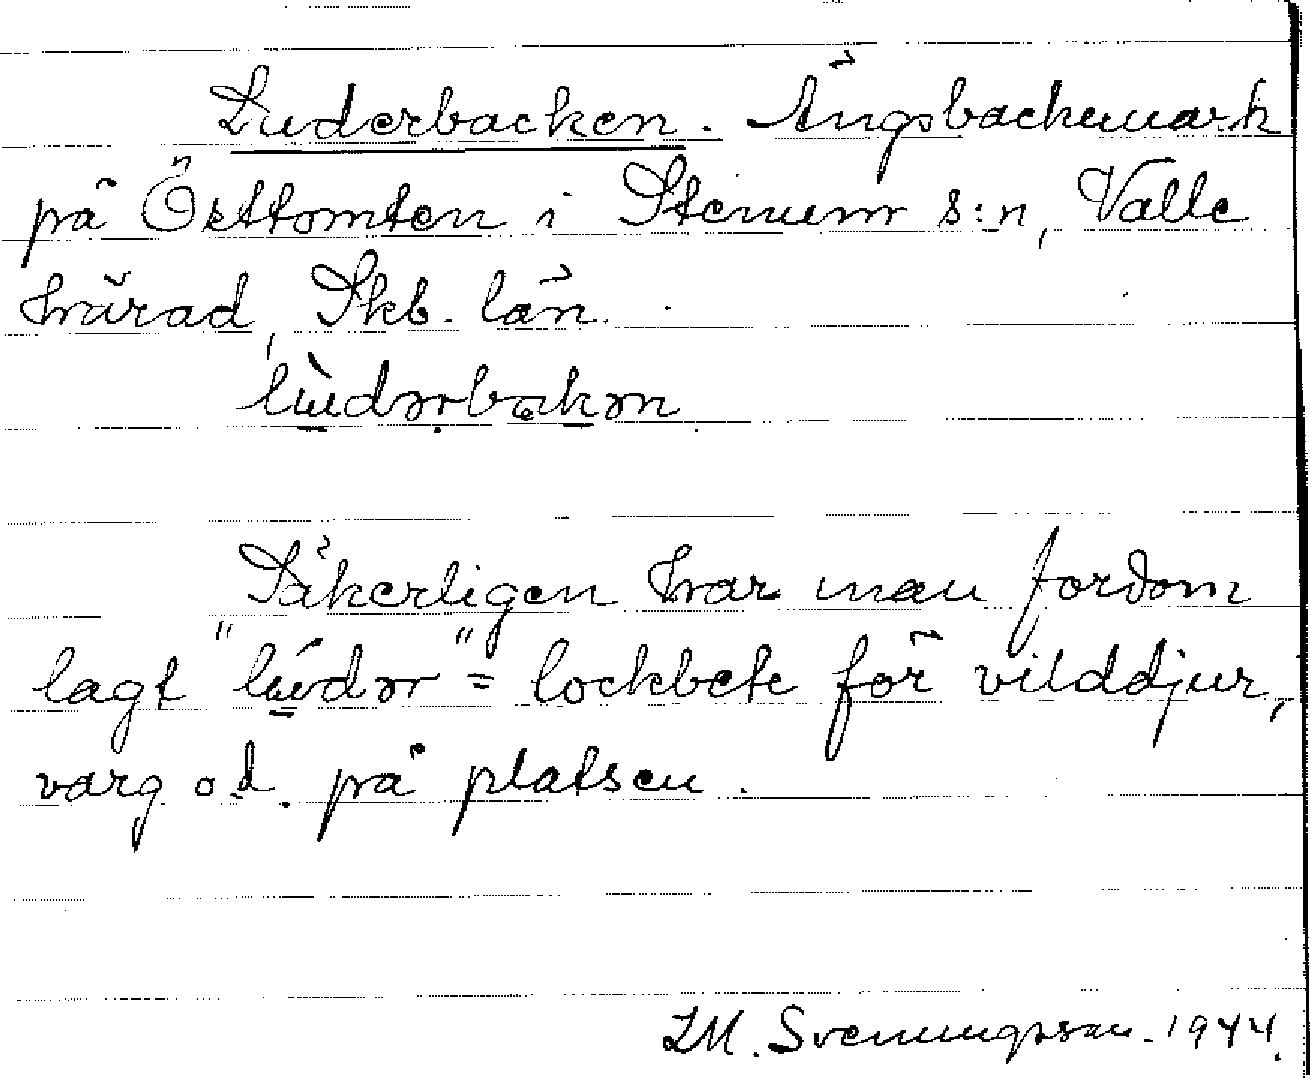 Luderbacken. Ängsbackemark
på Östtomten i Stenum s:n, Valle
härad, Skb. län.
lùdərbakən
Säkerligen har man fordom
lagt "lúdər" = lockbete för vilddjur,
varg o.d. på platsen.
LM. Svenungsson. 1944.